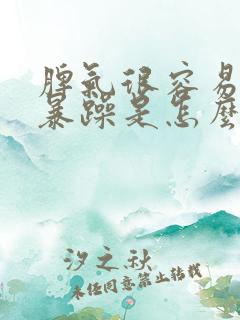 脾氣很容易
暴躁是怎麼
汐之秋
未经同意禁止转载